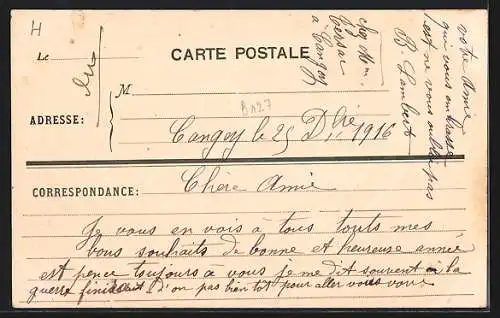 H
Le
CARTE POSTALE
M
B127
ADRESSE:
Cangey le 25 Dbre 1916
CORRESPONDANCE:
Chère Amie
Je vous en vois à tous touts mes
bons souhaits de bonne et heureuse année
est pence toujours a vous je me dit souvent si la
guerre finissait d'on pas bientôt pour aller vous voir
votre Amie
qui vous embrasse
est ne vous oublie pas
B. Lambert
chez Mr
Tersar
à Cangey